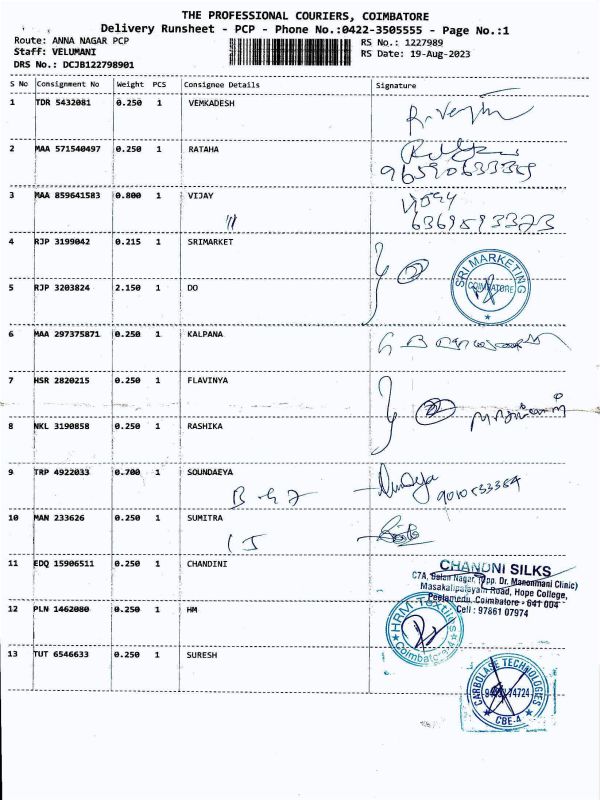 THE PROFESSIONAL COURIERS, COIMBATORE
Delivery Runsheet - PCP - Phone No.:0422-3505555 - Page No.:1
Route: ANNA NAGAR PCP RS No.: 1227989
Staff: VELUMANI RS Date: 19-Aug-2023
DRS No.: DCJB122798901
S No Consignment No Weight PCS Consignee Details Signature
1 TDR 5432081 0.250 1 VEMKADESH
2 MAA 571540497 0.250 1 RATAHA
3 MAA 859641583 0.800 1 VIJAY
6369593323
4 RJP 3199042 0.215 1 SRIMARKET
SRI MARKETING COIMBATORE
5 RJP 3203824 2.150 1 DO
6 MAA 297375871 0.250 1 KALPANA
7 HSR 2820215 0.250 1 FLAVINYA
8 NKL 3190858 0.250 1 RASHIKA
9 TRP 4922033 0.700 1 SOUNDAEYA
10 MAN 233626 0.250 1 SUMITRA
11 EDQ 15906511 0.250 1 CHANDINI
CHANDNI SILKS
C7A, Balan Nagar, (Opp. Dr. Manonmani Clinic)
Masakalipalayam Road, Hope College,
Peelamedu, Coimbatore - 641 004
Cell : 97861 07974
12 PLN 1462080 0.250 1 HM
HRM Textiles Coimbatore
13 TUT 6546633 0.250 1 SURESH
CARBOLASE TECHNOLOGIES
CBE-4